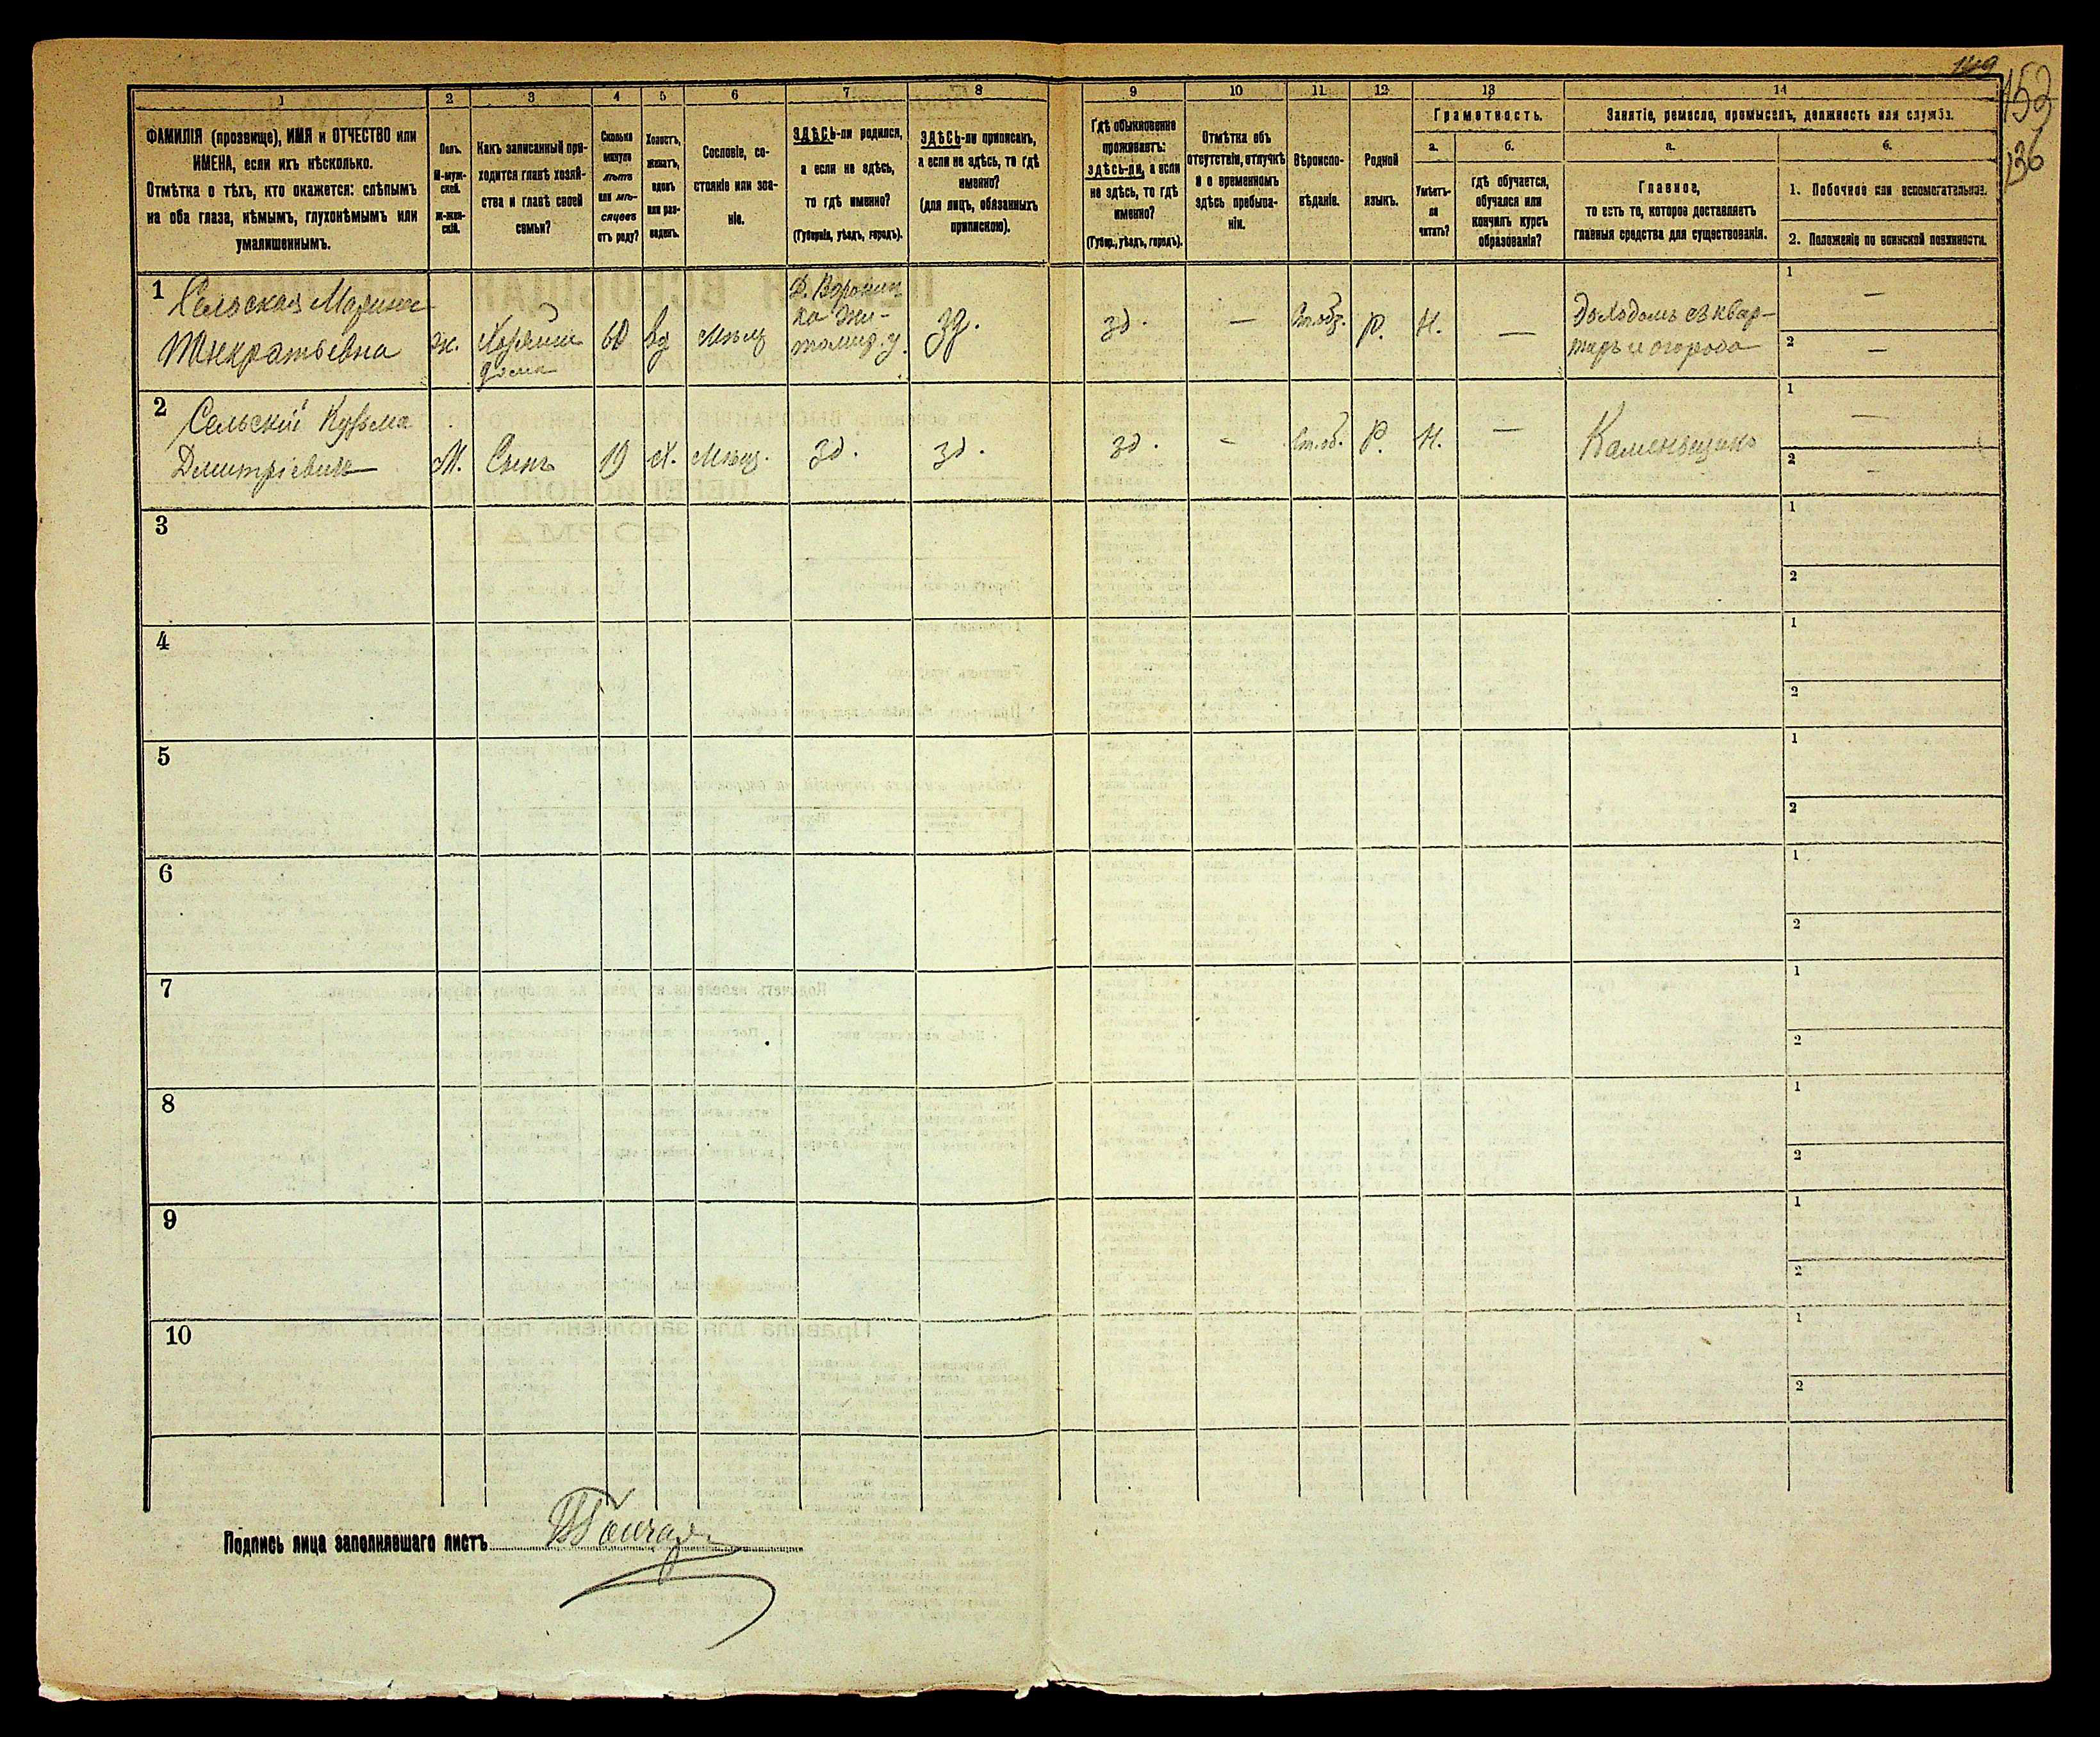 149
152
136
1 2 3 4 5 6 7 8 9 10 11 12 13 14
ФАМИЛІЯ (прозвище), ИМЯ и ОТЧЕСТВО или
ИМЕНА, если ихъ нѣсколько.
Отмѣтка о тѣхъ, кто окажется: слѣпымъ
на оба глаза, нѣмымъ, глухонѣмымъ или
умалишеннымъ.
Полъ.
М-муж-
ской.
Ж-жен-
скій.
Какъ записанный при-
ходится главѣ хозяй-
ства и главѣ своей
семьи?
Сколько
минуло
лѣтъ
или мѣ-
сяцевъ
отъ роду?
Холостъ,
женатъ,
вдовъ
или раз-
веденъ.
Сословіе, со-
стояніе или зва-
ніе.
ЗДѢСЬ-ли родился,
а если не здѣсь,
то гдѣ именно?
(Губернія, уѣздъ, городъ).
ЗДѢСЬ-ли приписанъ,
а если не здѣсь, то гдѣ
именно?
(для лицъ, обязанныхъ
припискою).
Гдѣ обыкновенно
проживаетъ:
здѣсь-ли, а если
не здѣсь, то гдѣ
именно?
(Губер., уѣздъ, городъ).
Отмѣтка объ
отсутствіи, отлучкѣ
и о временномъ
здѣсь пребыва-
ніи.
Вѣроиспо-
вѣданіе.
Родной
языкъ.
Грамотность.
а.
Умѣетъ-
ли
читать?
б.
гдѣ обучается,
обучался или
кончилъ курсъ
образованія?
Занятіе, ремесло, промыселъ, должность или служба.
а.
Главное,
то есть то, которое доставляетъ
главныя средства для существованія.
б.
1. Побочное или вспомогательное.
2. Положеніе по воинской повинности.
1
Сельская Марина
ж.
Хозяйка
дома
60
вд
Мѣщ
зд.
зд.
—
Р.
Н.
—
Доходомъ съ квар-
тиръ и огорода
1 —
2 —
2
Сельскій Кузьма
Дмитріевичъ
М.
Сынъ
19
Х.
Мѣщ.
зд.
зд.
зд.
-
Р.
Н.
—
Каменьщикъ
1 —
2 —
3
1
2
4
1
2
5
1
2
6
1
2
7
1
2
8
1
2
9
1
2
10
1
2
Подпись лица заполнявшаго листъ